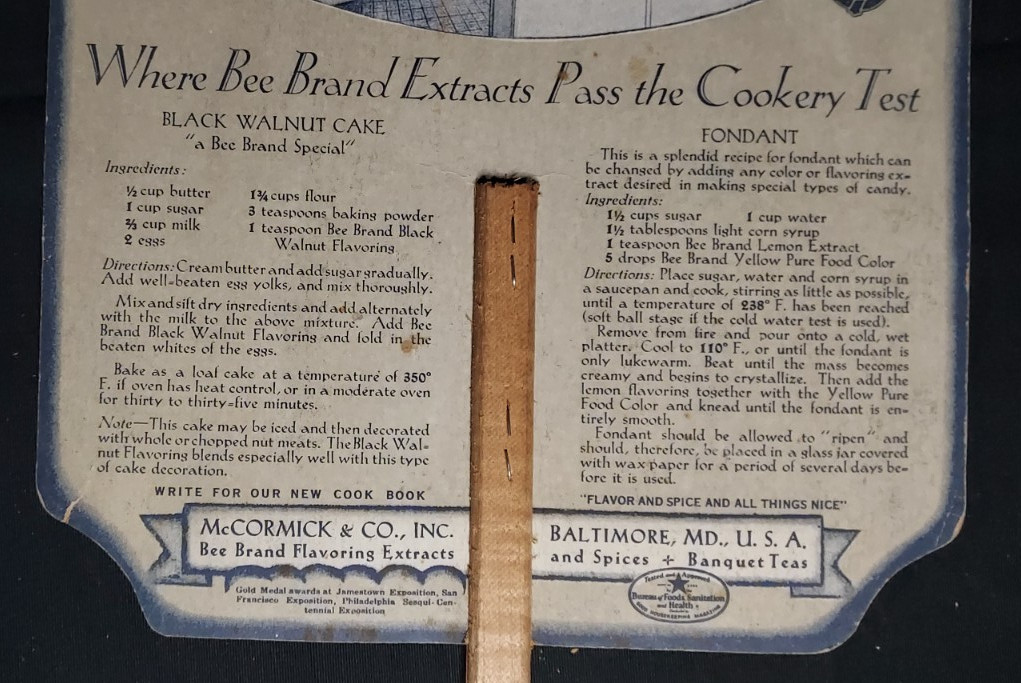 Where Bee Brand Extracts Pass the Cookery Test
BLACK WALNUT CAKE
"a Bee Brand Special"
Ingredients:
½ cup butter
1 cup sugar
⅔ cup milk
2 eggs
1¾ cups flour
3 teaspoons baking powder
1 teaspoon Bee Brand Black
Walnut Flavoring
Directions: Cream butter and add sugar gradually.
Add well-beaten egg yolks, and mix thoroughly.
Mix and sift dry ingredients and add alternately
with the milk to the above mixture. Add Bee
Brand Black Walnut Flavoring and fold in the
beaten whites of the eggs.
Bake as a loaf cake at a temperature of 350°
F. if oven has heat control, or in a moderate oven
for thirty to thirty-five minutes.
Note—This cake may be iced and then decorated
with whole or chopped nut meats. The Black Wal-
nut Flavoring blends especially well with this type
of cake decoration.
WRITE FOR OUR NEW COOK BOOK
FONDANT
This is a splendid recipe for fondant which can
be changed by adding any color or flavoring ex-
tract desired in making special types of candy.
Ingredients:
1½ cups sugar 1 cup water
1½ tablespoons light corn syrup
1 teaspoon Bee Brand Lemon Extract
5 drops Bee Brand Yellow Pure Food Color
Directions: Place sugar, water and corn syrup in
a saucepan and cook, stirring as little as possible,
until a temperature of 238° F. has been reached
(soft ball stage if the cold water test is used).
Remove from fire and pour onto a cold, wet
platter. Cool to 110° F., or until the fondant is
only lukewarm. Beat until the mass becomes
creamy and begins to crystallize. Then add the
lemon flavoring together with the Yellow Pure
Food Color and knead until the fondant is en-
tirely smooth.
Fondant should be allowed to "ripen" and
should, therefore, be placed in a glass jar covered
with wax paper for a period of several days be-
fore it is used.
"FLAVOR AND SPICE AND ALL THINGS NICE"
McCORMICK & CO., INC.
Bee Brand Flavoring Extracts
BALTIMORE, MD., U. S. A.
and Spices + Banquet Teas
Gold Medal awards at Jamestown Exposition, San
Francisco Exposition, Philadelphia Sesqui-Cen-
tennial Exposition
Tested and Approved
Bureau of Foods Sanitation
and Health
GOOD HOUSEKEEPING MAGAZINE